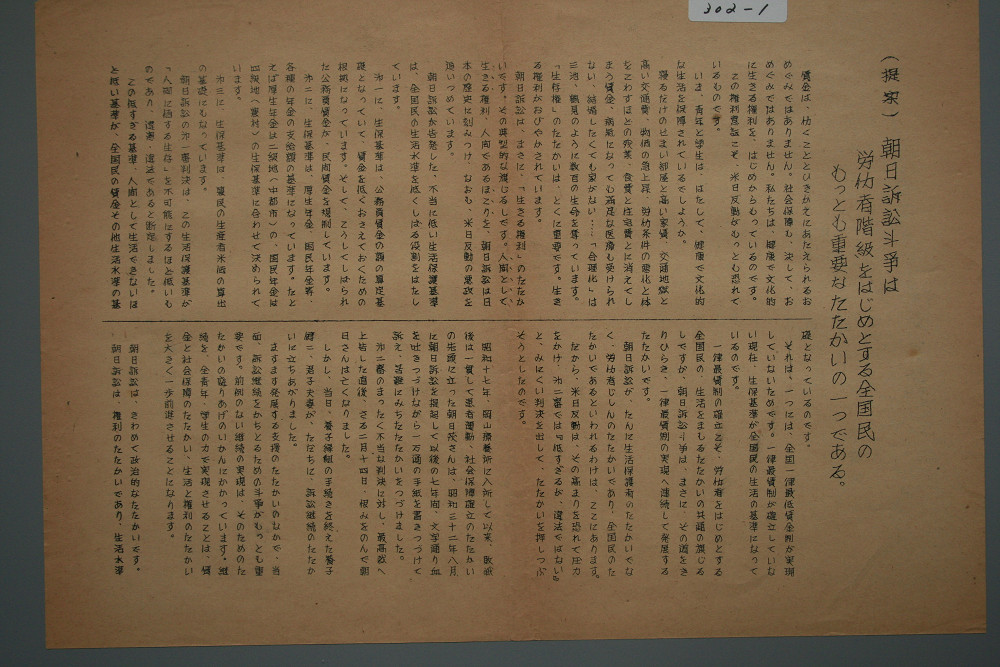 302-1
（提案）朝日訴訟斗争は
労仂者階級をはじめとする全国民の
もっとも重要なたたかいの一つである。
賃金は、仂くこととひきかえにあたえられるお
めぐみではありません。社会保障も、決して、お
めぐみではありません。私たちは、健康で文化的
に生きる権利を、はじめからもっているのです。
この権利意識こそ、米日反動がもっとも恐れて
いるものです。
いま、青年と学生は、はたして、健康で文化的
な生活を保障されているでしょうか。
寝るだけのせまい部屋と高い家賃、交通地獄と
高い交通費、物価の急上昇、労仂条件の悪化と体
をこわすほどの残業、食費と住宅費に消えてし
まう賃金、病気になっても満足な医療も受けられ
ない、結婚したくても家がない……「合理化」は
三池、鶴見のように数百の生命を奪っています。
「生存権」のたたかいは、とくに重要です。生き
る権利がおびやかされています。
朝日訴訟は、まさに、「生きる権利」のたたか
いです。その典型的な旗じるしです。人間として、
生きる権利、人間であるほこりを、朝日訴訟は日
本の歴史に刻みつけ、なおも、米日反動の悪政を
追いつめています。
朝日訴訟が告発した、不当に低い生活保護基準
は、全国民の生活水準を低くしばる役割をはたし
ています。
第一に、生保基準は、公務員賃金の額の算定基
礎となっていて、賃金を低くおさえておくための
根拠になっています。そして、こうしてしばられ
た公務員賃金が、民間賃金を規制しています。
第二に、生保基準は、厚生年金、国民年金等、
各種の年金の支給額の基準になっています。たと
えば厚生年金は二級地（中都市）の、国民年金は
四級地（農村）の生保基準に合わせて決められて
います。
第三に、生保基準は、農民の生産者米価の算出
の基礎にもなっています。
朝日訴訟の第一審判決は、この生活保護基準が
「人間に値する生存」を不可能にするほど低いも
のであり、違憲・違法であると断定しました。
この低すぎる基準、人間として生活できないほ
ど低い基準が、全国民の賃金その他生活水準の基
礎となっているのです。
それは、一つには、全国一律最低賃金制が実現
していないためです。一律最賃制が確立していな
い現在、生保基準が全国民の生活の基準になって
いるのです。
一律最賃制の確立こそ、労仂者をはじめとする
全国民の、生活をまもるたたかいの共通の旗じる
しですが、朝日訴訟斗争は、まさに、その道をき
りひらき、一律最賃制の実現へ連続して発展する
たたかいです。
朝日訴訟が、たんに生活保護者のたたかいでな
く、労仂者じしんのたたかいであり、全国民のた
たかいであるといわれるわけは、ここにあります。
だから、米日反動は、その高まりを恐れて圧力
をかけ、第二審では〝低すぎるが、違法ではない〟
と、みにくい判決を出して、たたかいを押しつぶ
そうとしたのです。
昭和十七年、岡山療養所に入所して以来、敗戦
後は一貫して患者運動、社会保障確立のたたかい
の先頭に立った朝日茂さんは、昭和三十二年八月
に朝日訴訟を提起して以後の七年間、文字通り血
を吐きつづけながら一万通の手紙を書きつづけて
訴え、苦難にみちたたたかいをつづけました。
第二審のまったく不当な判決に対し、最高裁へ
上告した直後、さる二月十四日、恨みをのんで朝
日さんは亡くなりました。
しかし、当日、養子縁組の手続きを終えた養子
健二、君子夫妻が、ただちに、訴訟継続のたたか
いに立ちあがりました。
ますます発展する支援のたたかいのなかで、当
面、訴訟継続をかちとるための斗争がもっとも重
要です。前例のない継続の実現は、そのためのた
たかいの盛りあげのいかんにかかっています。継
続を、全青年、学生の力で実現させることは、賃
金と社会保障のたたかい、生活と権利のたたかい
を大きく一歩前進させることになります。
朝日訴訟は、きわめて政治的なたたかいです。
朝日訴訟は、権利のたたかいであり、生活水準